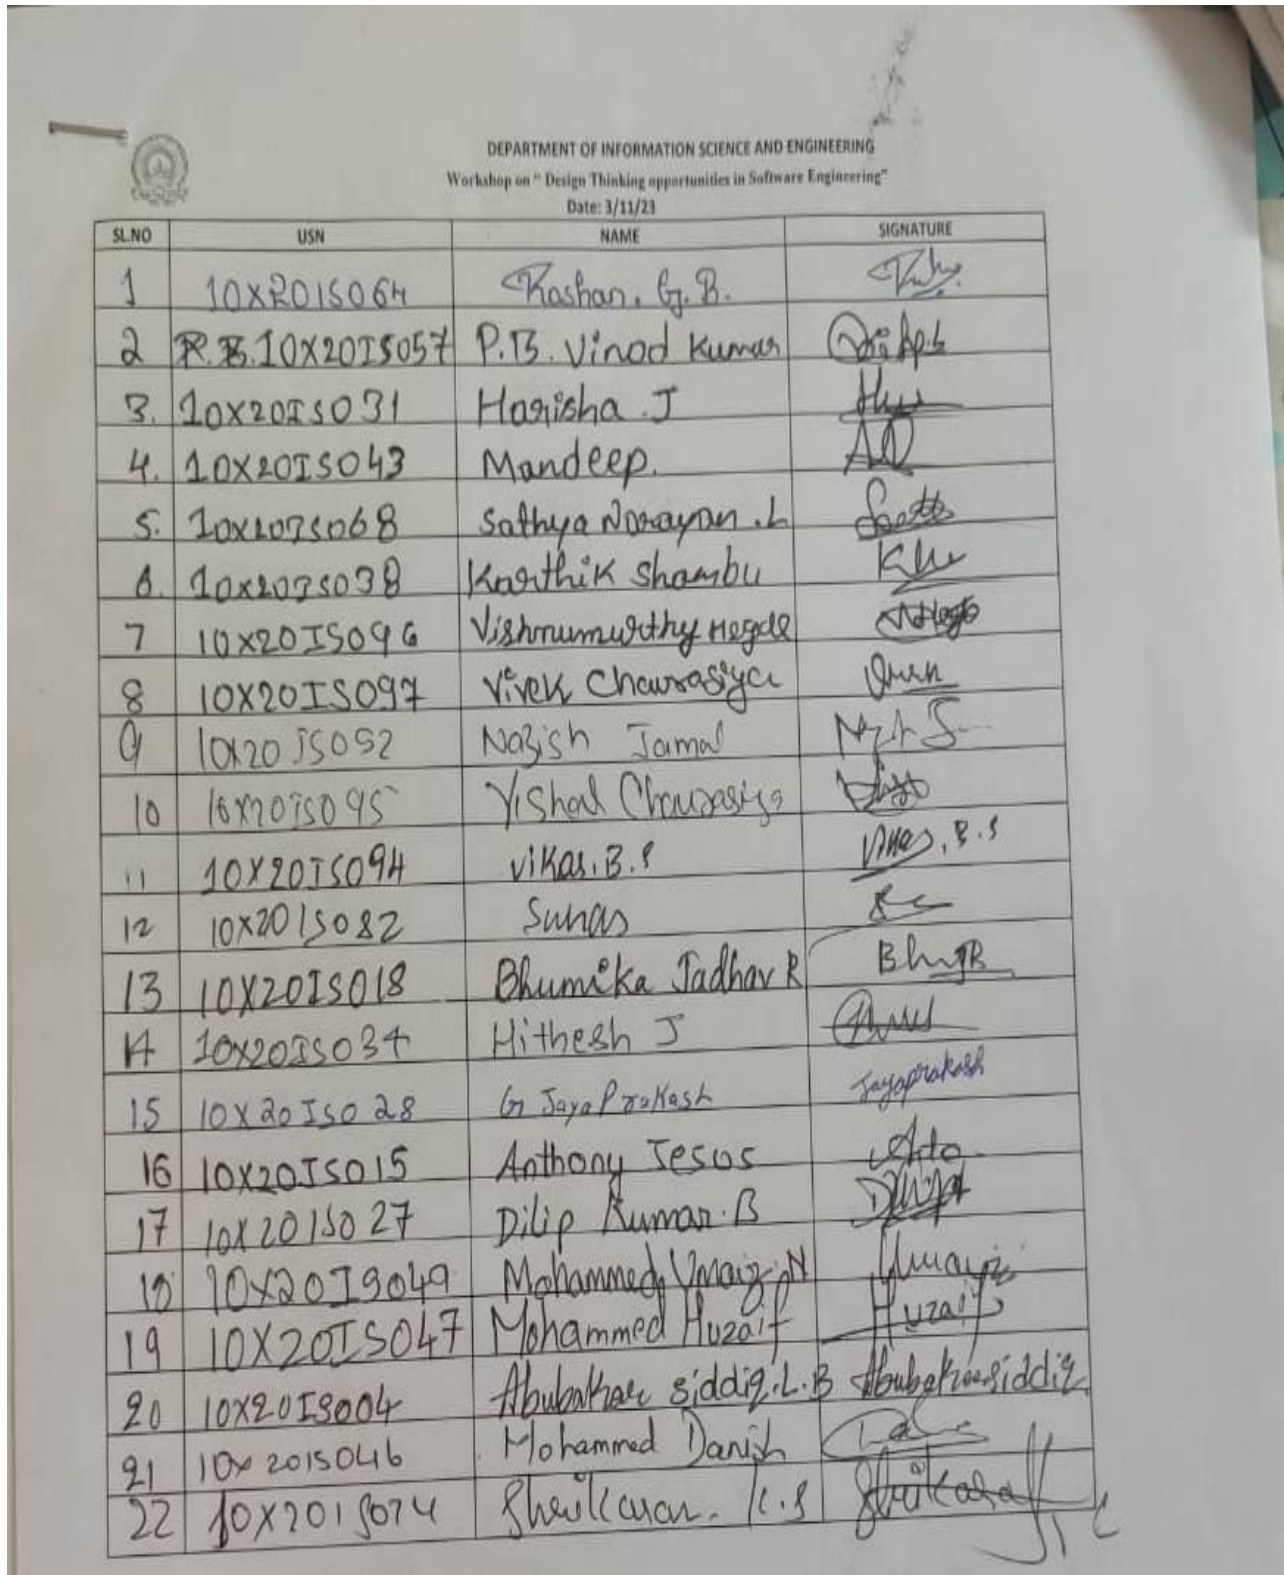 DEPARTMENT OF INFORMATION SCIENCE AND ENGINEERING
Workshop on " Design Thinking opportunities in Software Engineering"
Date: 3/11/23
SL.NO USN NAME SIGNATURE
1 10X20IS064 Roshan. G. B.
2 10X20IS057 P.B. Vinod Kumar
3. 10X20IS031 Harisha J
4. 10X20IS043 Mandeep.
5. 10X20IS068 Sathya Narayan .L
6. 10X20IS038 Karthik Shambu
7 10X20IS096 Vishnumurthy Hegde
8 10X20IS097 Vivek Chaurasiya
9 10X20IS052 Nazish Jamal
10 10X20IS095 Vishal Chaurasiya
11 10X20IS094 Vikas.B.S Vikas.B.S
12 10X20IS082 Suhas
13 10X20IS018 Bhumika Jadhav R
14 10X20IS034 Hithesh J
15 10X20IS028 G JayaPrakash Jayaprakash
16 10X20IS015 Anthony Jesus
17 10X20IS027 Dilip Kumar.B
18 10X20IS049 Mohammed Umaiz N Umaiz
19 10X20IS047 Mohammed Huzaif Huzaif
20 10X20IS004 Abubakar Siddiq.L.B Abubakar Siddiq
21 10X20IS046 Mohammed Danish
22 10X20IS074 K.S